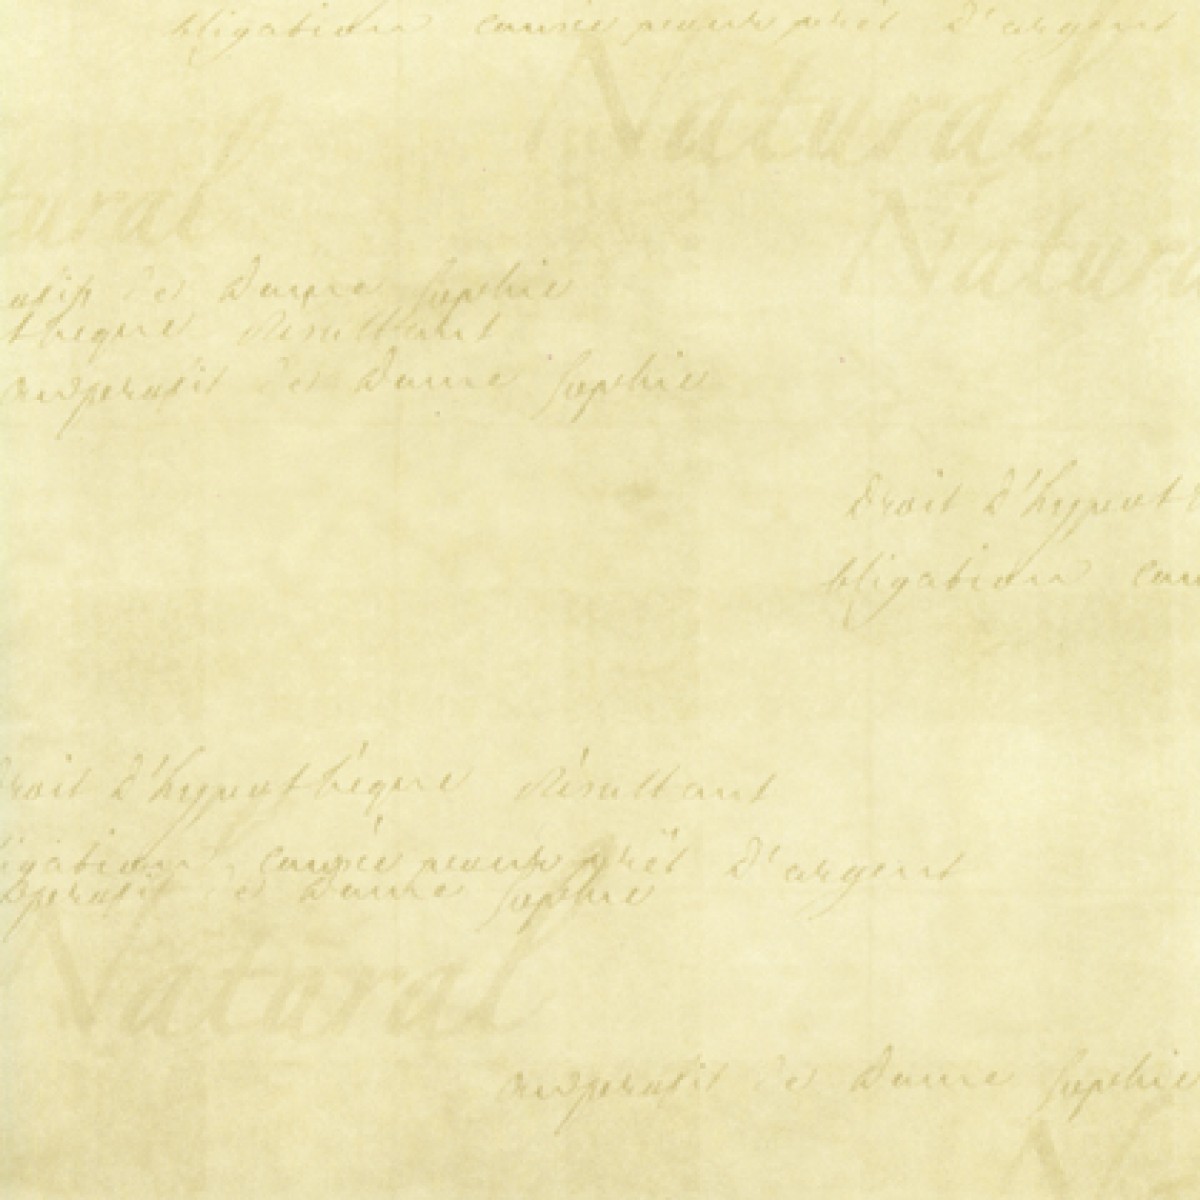 obligation causée pour prêt d'argent
Natural
tural
Natura
de Dame Sophie
thèque résultant
de Dame Sophie
droit d'hypoth
obligation cau
droit d'hypothèque résultant
ligation causée pour prêt d'argent
de Dame Sophie
Natural
de Dame Sophie
N